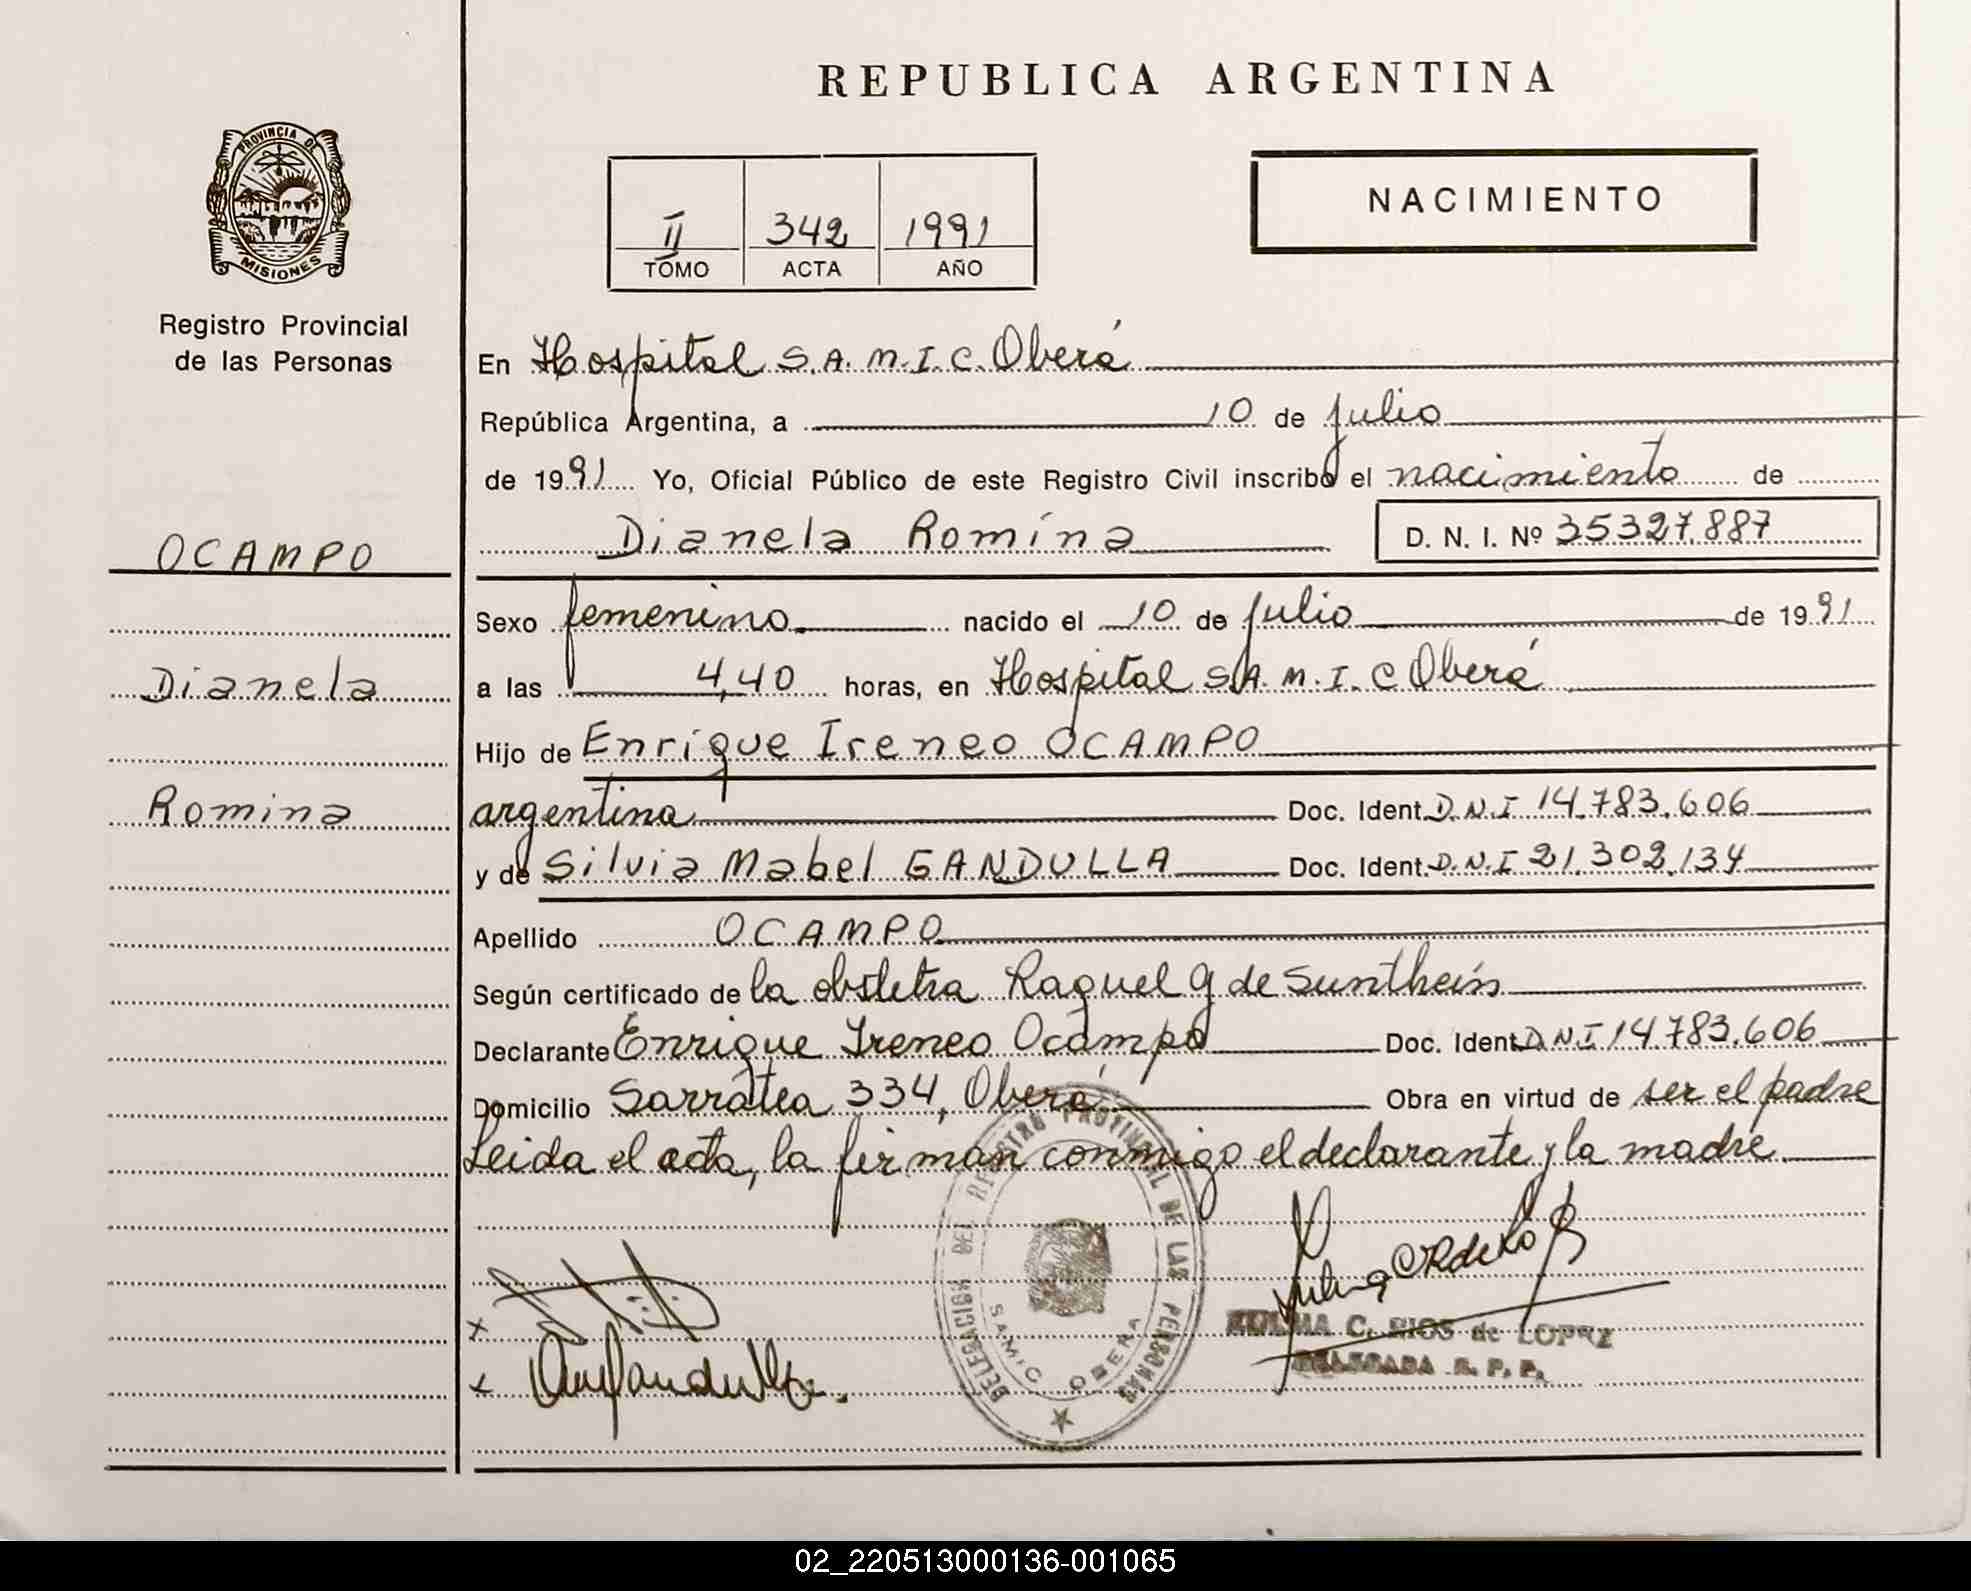 REPUBLICA ARGENTINA
PROVINCIA DE
MISIONES
Registro Provincial
de las Personas
NACIMIENTO
II 342 1991
TOMO ACTA AÑO
En Hospital S.A.M.I.C. Oberá
República Argentina, a 10 de julio
de 1991 Yo, Oficial Público de este Registro Civil inscribo el nacimiento de
OCAMPO
Dianela Romina D. N. I. Nº 35327.887
Sexo femenino nacido el 10 de julio de 1991
Dianela
a las 4,40 horas, en Hospital S.A.M.I.C Oberá
Hijo de Enrique Ireneo OCAMPO
Romina
argentina Doc. Ident. D.N.I 14.783.606
y de Silvia Mabel GANDULLA Doc. Ident. D.N.I 21.302.134
Apellido OCAMPO
Según certificado de la obstetra Raquel G de Suntheins
Declarante Enrique Ireneo Ocampo Doc. Ident. D.N.I 14.783.606
Domicilio Sarratea 334, Oberá Obra en virtud de ser el padre
Leida el acta, la firman conmigo el declarante y la madre
DELEGACION DEL REGISTRO PROVINCIAL DE LAS PERSONAS
SAMIC OBERA
C. RIOS de LOPEZ
DELEGADA R. P. P.
02_220513000136-001065